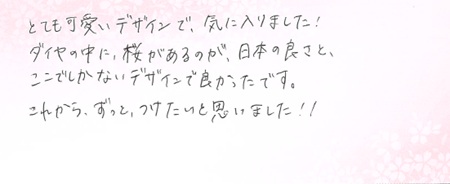 とても可愛いデザインで、気に入りました!
ダイヤの中に、桜があるのが、日本の良さと、
ここでしかないデザインで良かったです。
これから、ずっと、つけたいと思いました!!